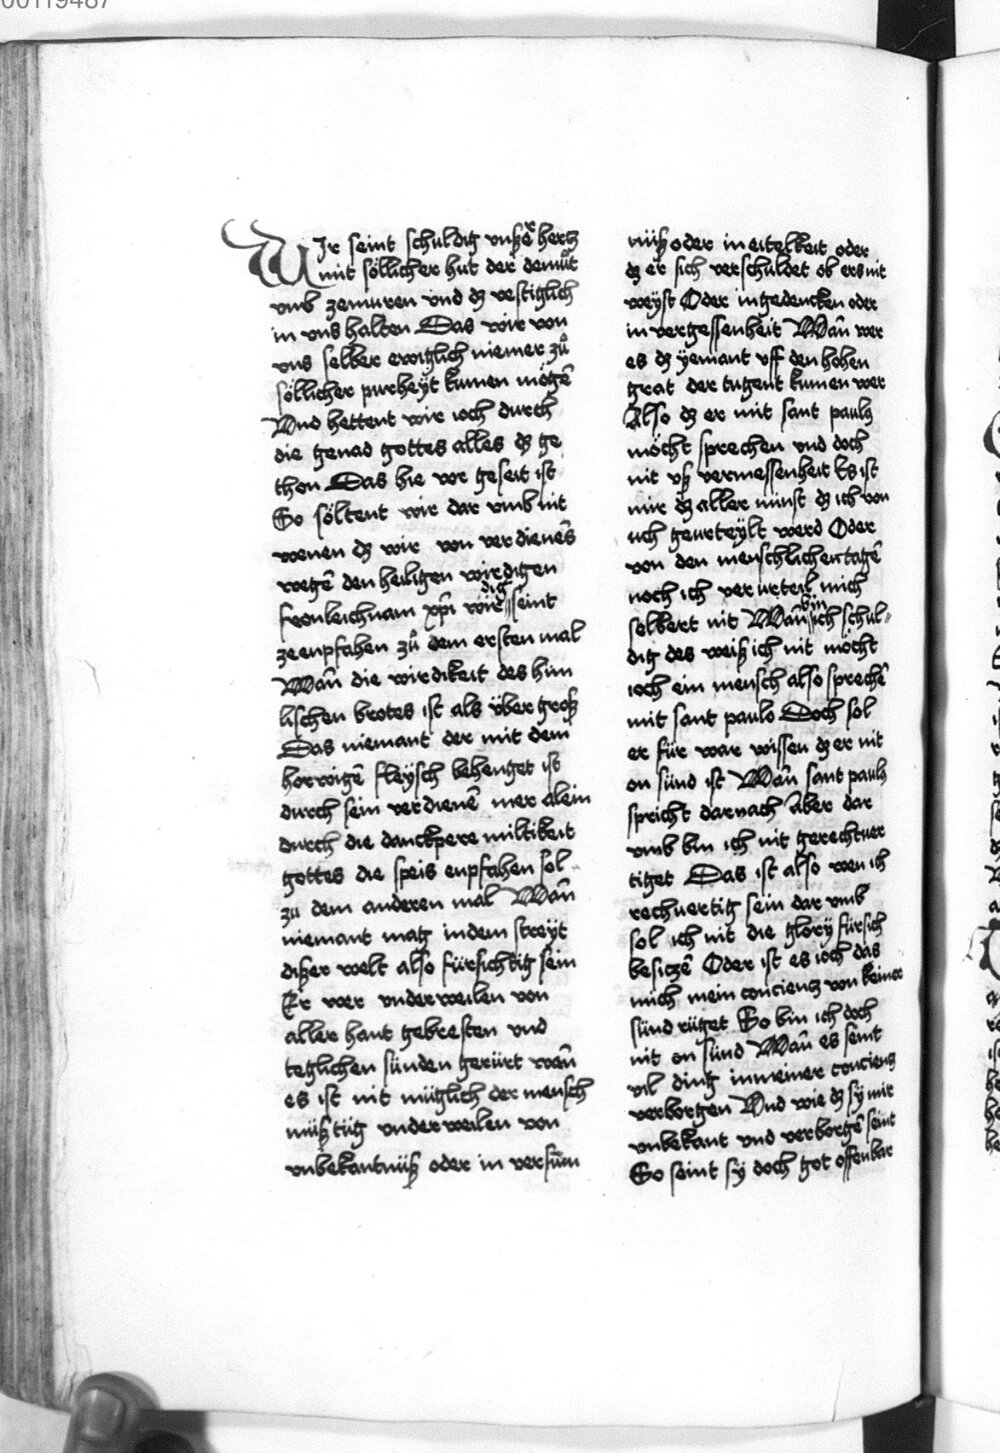 00119487
WJr seint schuldig vnßer hertz
mit söllicher hut der demuͤt
vmb zemuren vnd dz vestiglich
in vns halten Das wir von
vns selber ewiglich niemer zuͦ
söllicher purheyt kumen mögē
Vnd hettent wir ioch durch
die genad gottes alles dz ge
thon Das hie vor geseit ist
So söltent wir dar vmb nit
wenen dz wir von verdienēs
wegē den heiligen wirdigen
fronleichnam xp̄i wirdig seint
zeenpfahen zuͦ dem ersten mal
Wan̄ die wirdikeit des him
lischen brotes ist als über groß
Das niemant der mit dem
horwigē fleysch behenget ist
durch sein verdienē mer alein
durch die danckpere miltikeit
gottes die speis enpfahen sol
zu dem anderen mal Wan̄
niemant mag indem streyt
dißer welt also fürsichtig sein
Er wer vnderweilen von
aller hant gebresten vnd
teglichen sünden gerürt wan̄
es ist nit müglich der mensch
müß tüg vnderweilen von
vnbekantnüß oder in versum
nüß oder in eitelkeit oder
dz er sich verschuldet ob ers nit
weyst Oder ingedencken oder
in vergessenheit Wan̄ wer
es dz yemant vff den hohen
grat der tugent kumen wer
Also dz er mit sant paulꝯ
möcht sprechen vnd doch
nit vß vermessenheit Es ist
mir dz aller minst dz ich von
uch geurteylt werd Oder
von den menschlichen tagē
noch ich verurteil mich
selbert nit Wan̄ bin ich schul
dig des weiß ich nit möcht
ioch ein mensch also sprechē
mit sant paulo Doch sol
er für war wissen dz er nit
on sünd ist Wan̄ sant paulꝯ
spricht darnach Aber dar
vmb bin ich nit gerechtuer
tiget Das ist also wen ich
rechuertig sein dar vmb
sol ich nit die glory fürsich
besiczē Oder ist es ioch das
mich mein concienz von keiner
sünd rüget So bin ich doch
nit on sünd Wan̄ es seint
vil ding inmeiner concienz
verborgen Vnd wie dz sy mir
vnbekant vnd verborgē seint
So seint sy doch got offenbar